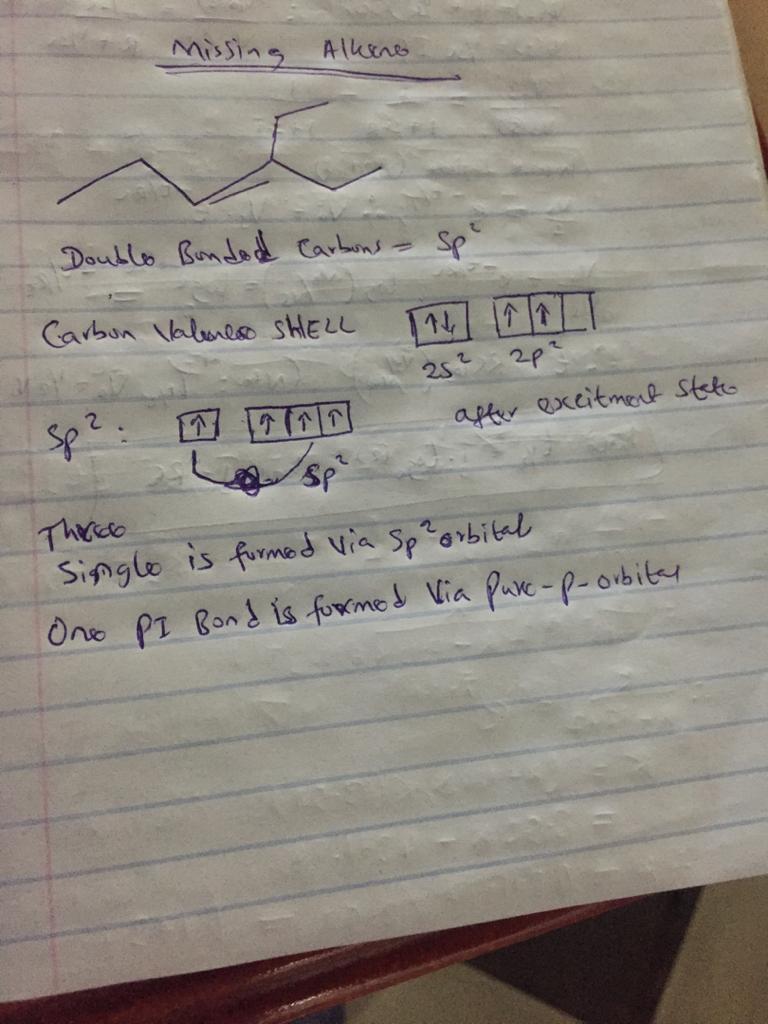 Missing Alkene
Double Bonded Carbons = Sp²
Carbon Valence SHELL ↑↓ ↑ ↑
2s² 2p²
Sp² : ↑ ↑ ↑ ↑ after excitment state
Sp²
Three
Single is formed via Sp² orbital
One PI Bond is formed via Pure-p-orbital